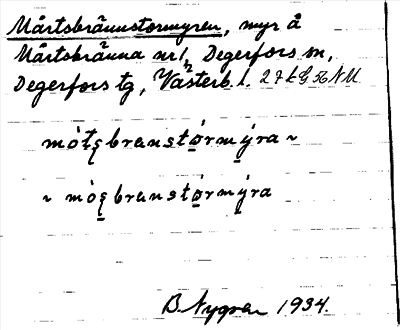 Mårtsbrännstormyren, myr å
Mårtsbränna nr 1, Degerfors sn,
Degerfors tg, Västerb. l.
mót̨s̨branstǫ́rmýra ~
~ mòs̨branstǫ́rmýra
B. Nygren 1934.